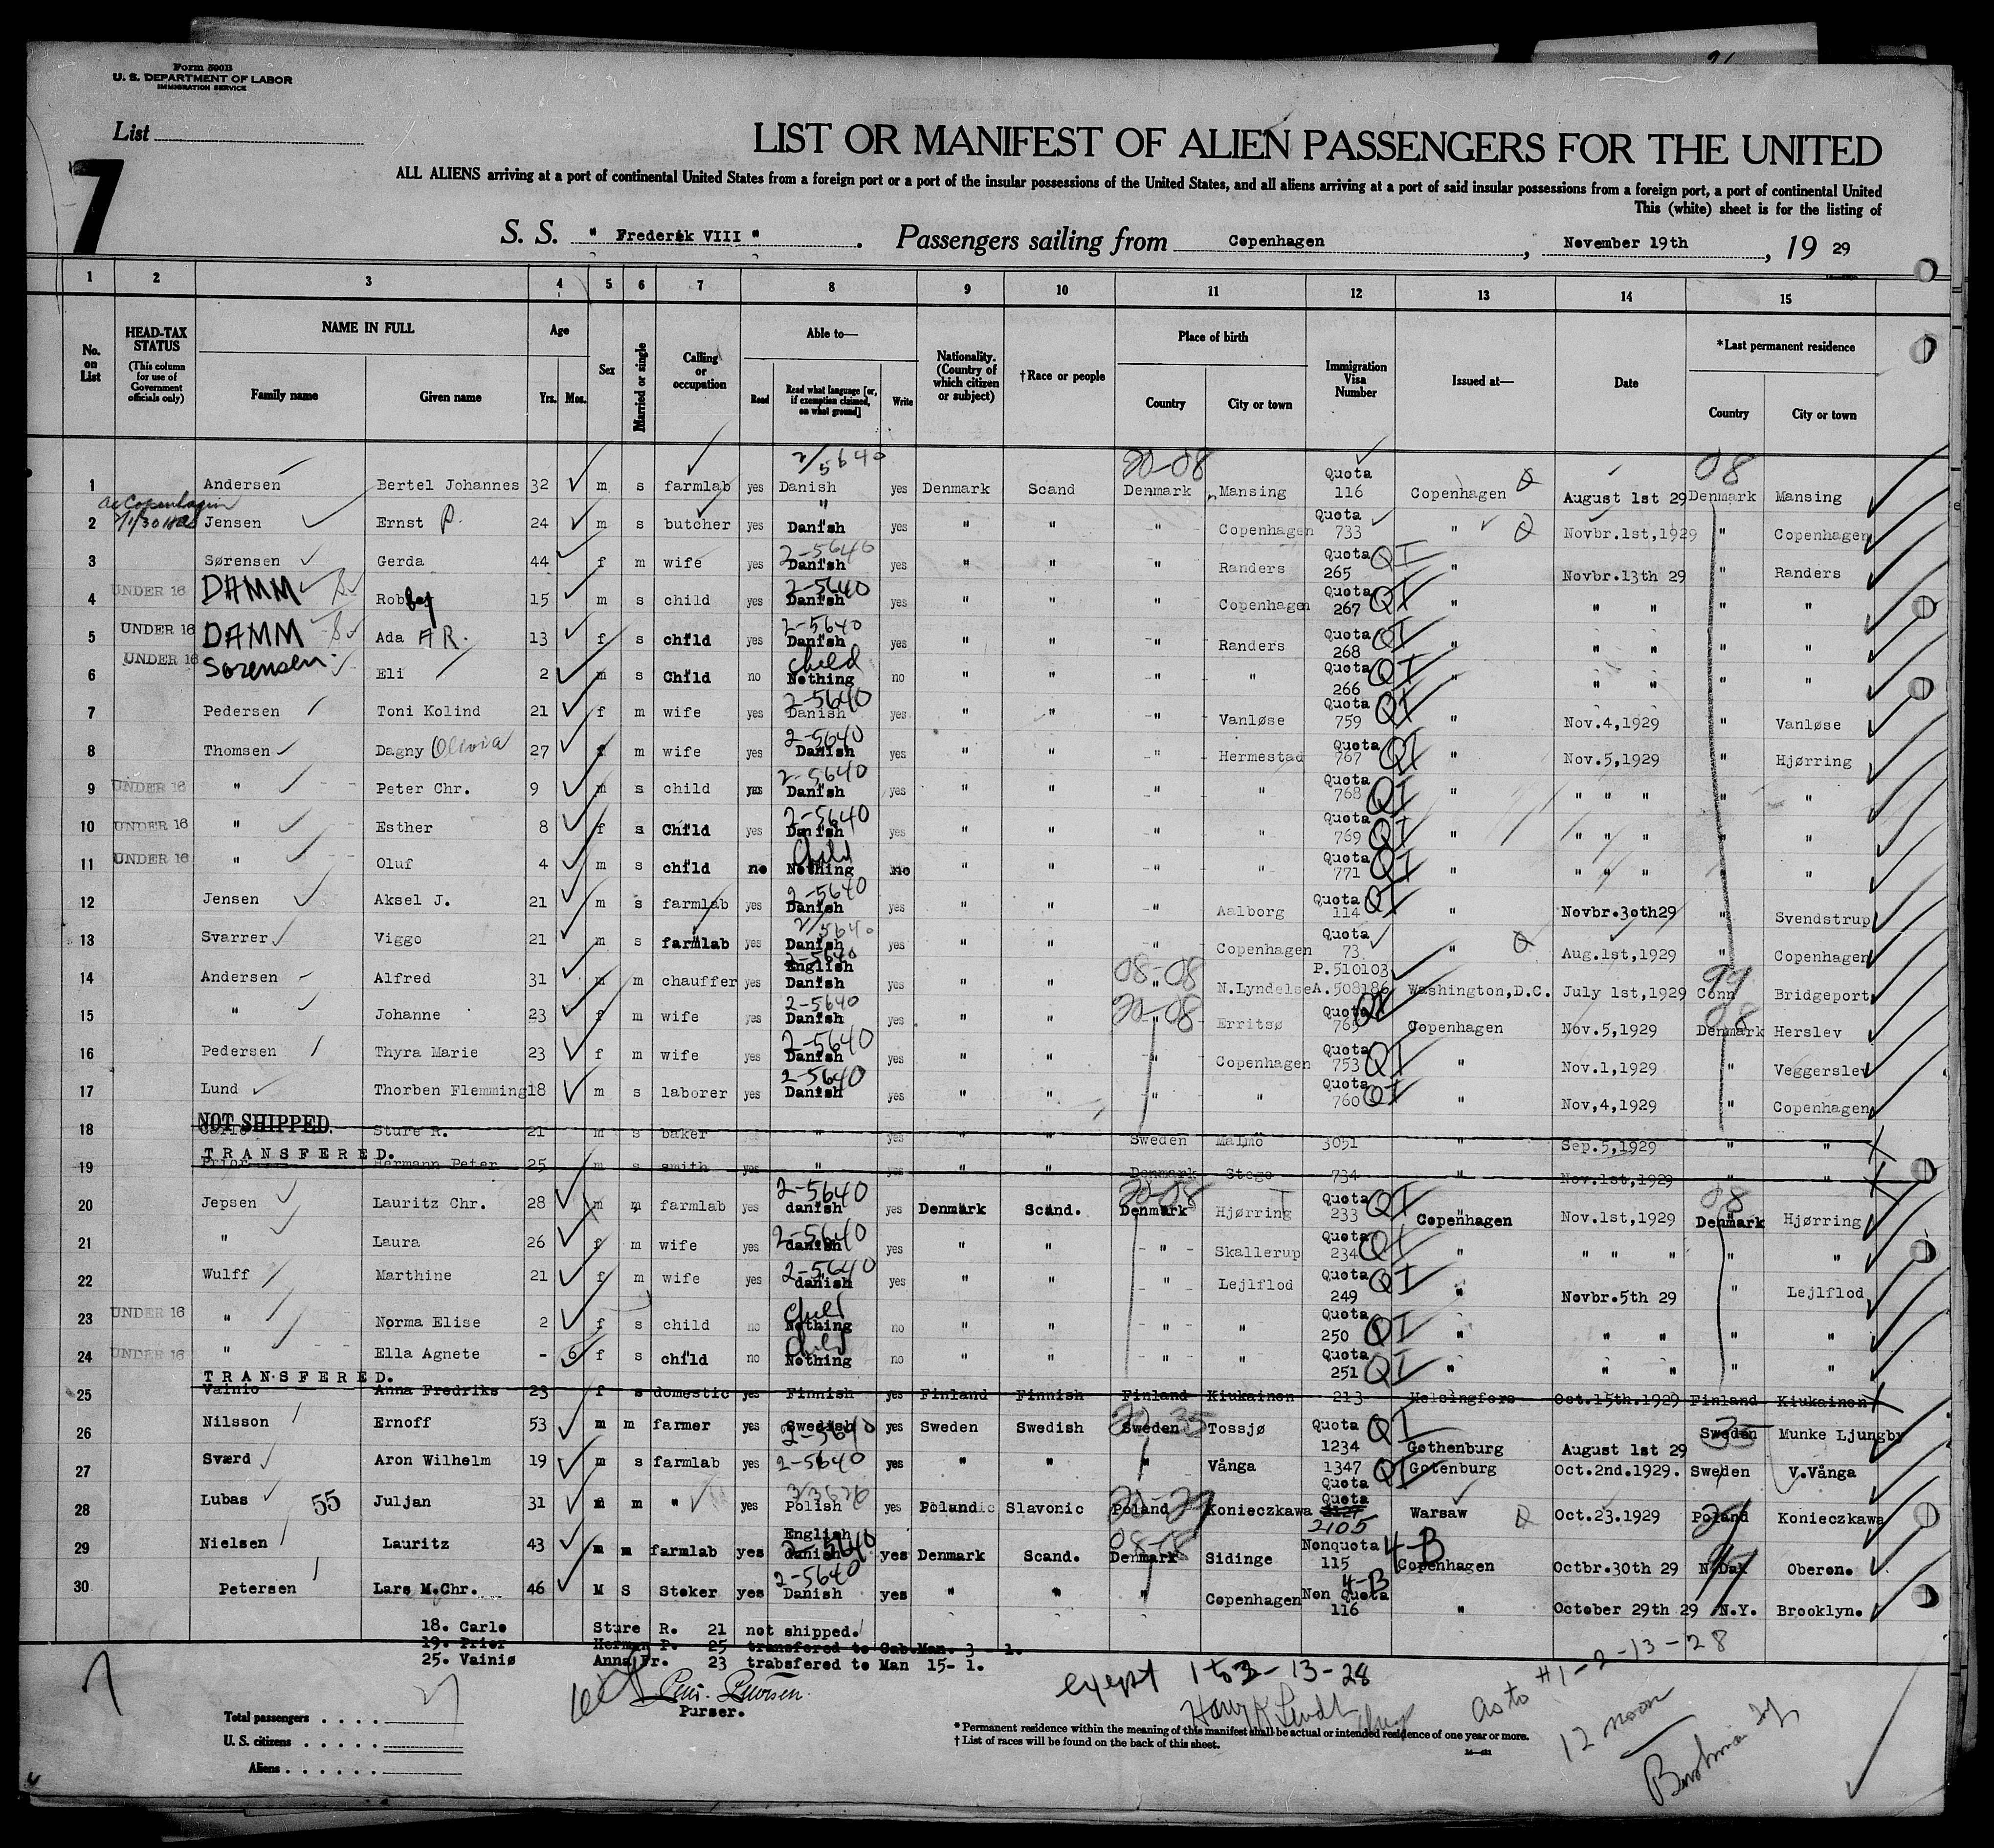 Form 500B
U. S. DEPARTMENT OF LABOR
IMMIGRATION SERVICE
List
7
LIST OR MANIFEST OF ALIEN PASSENGERS FOR THE UNITED
ALL ALIENS arriving at a port of continental United States from a foreign port or a port of the insular possessions of the United States, and all aliens arriving at a port of said insular possessions from a foreign port, a port of continental United
This (white) sheet is for the listing of
S. S. " Frederik VIII " . Passengers sailing from Copenhagen , November 19th , 19 29
1 2 3 4 5 6 7 8 9 10 11 12 13 14 15
No. on List
HEAD-TAX STATUS (This column for use of Government officials only)
NAME IN FULL Family name Given name
Age Yrs. Mos.
Sex
Married or single
Calling or occupation
Able to— Read Read what language [or, if exemption claimed, on what ground] Write
Nationality. (Country of which citizen or subject)
†Race or people
Place of birth Country City or town
Immigration Visa Number
Issued at—
Date
*Last permanent residence Country City or town
2/5640 20-08 08
1 Andersen Bertel Johannes 32 m s farmlab yes Danish yes Denmark Scand Denmark Mansing Quota 116 Copenhagen August 1st 29 Denmark Mansing
2 Jensen Ernst P. 24 m s butcher yes Danish " yes " " " Copenhagen Quota 733 " Novbr.1st,1929 " Copenhagen
3 Sørensen Gerda 44 f m wife yes 2-5640 Danish yes " " " Randers Quota 265 QI " Novbr.13th 29 " Randers
UNDER 16 4 DAMM Robbey 15 m s child yes 2-5640 Danish yes " " " Copenhagen Quota 267 QI " " " " "
UNDER 16 5 DAMM Ada A R. 13 f s child yes 2-5640 Danish yes " " " Randers Quota 268 QI " " " " "
UNDER 16 6 Sorensen Eli 2 m s Child no Child Nothing no " " " " Quota 266 QI " " " " "
7 Pedersen Toni Kolind 21 f m wife yes 2-5640 Danish yes " " " Vanløse Quota 759 QI " Nov.4,1929 " Vanløse
8 Thomsen Dagny Olivia 27 f m wife yes 2-5640 Danish yes " " " Hermestad Quota 767 QI " Nov.5,1929 " Hjørring
9 UNDER 16 " Peter Chr. 9 m s child yes 2-5640 Danish yes " " " " Quota 768 QI " " " " " "
10 UNDER 16 " Esther 8 f s Child yes 2-5640 Danish yes " " " " Quota 769 QI " " " " " "
11 UNDER 16 " Oluf 4 m s child no Child Nothing no " " " " Quota 771 QI " " " " " "
12 Jensen Aksel J. 21 m s farmlab yes 2-5640 Danish yes " " " Aalborg Quota 114 QI " Novbr.30th29 " Svendstrup
13 Svarrer Viggo 21 m s farmlab yes 2/5640 Danish yes " " " Copenhagen Quota 73 " Aug.1st,1929 " Copenhagen
14 Andersen Alfred 31 m m chauffer yes 2-5640 English Danish yes " " 08-08 " N.Lyndelse P.510103 A.508186 Washington,D.C. July 1st,1929 99 Conn Bridgeport
15 " Johanne 23 f m wife yes 2-5640 Danish yes " " 20-08 " Erritsø Quota 765 QI Copenhagen Nov.5,1929 08 Denmark Herslev
16 Pedersen Thyra Marie 23 f m wife yes 2-5640 Danish yes " " " Copenhagen Quota 753 QI " Nov.1,1929 " Veggerslev
17 Lund Thorben Flemming 18 m s laborer yes 2-5640 Danish yes " " " " Quota 760 QI " Nov,4,1929 " Copenhagen
NOT SHIPPED.
18 Carlo Sture R. 21 m s baker " yes " " Sweden Malmö 3051 " Sep.5,1929 " "
TRANSFERED.
19 Prior Hermann Peter 25 m s smith yes " yes " " Denmark Stege 734 " Nov.1st,1929 " "
20 Jepsen Lauritz Chr. 28 m m farmlab yes 2-5640 danish yes Denmark Scand. 20-08 Denmark Hjørring Quota 233 QI Copenhagen Nov.1st,1929 08 Denmark Hjørring
21 " Laura 26 f m wife yes 2-5640 danish yes " " " Skallerup Quota 234 QI " " " " " "
22 Wulff Marthine 21 f m wife yes 2-5640 danish yes " " " Lejlflod Quota 249 QI " Novbr.5th 29 " Lejlflod
23 UNDER 16 " Norma Elise 2 f s child no Child Nothing no " " " " Quota 250 QI " " " " "
24 UNDER 16 " Ella Agnete - 6 f s child no Child Nothing no " " " " Quota 251 QI " " " " "
TRANSFERED.
25 Vainio Anna Fredriks 23 f s domestic yes Finnish yes Finland Finnish Finland Kiukainen 213 Helsingfors Oct.15th.1929 Finland Kiukainen
26 Nilsson Ernoff 53 m m farmer yes Swedish 2-5640 yes Sweden Swedish Sweden Tossjø Quota 1234 QI Gothenburg August 1st 29 35 Sweden Munke Ljungby
27 Sværd Aron Wilhelm 19 m s farmlab yes 2-5640 yes " " " Vånga 1347 Quota QI Gotenburg Oct.2nd.1929. Sweden V.Vånga
28 Lubas 55 Juljan 31 m m " yes Polish yes Poland Slavonic Poland Konieczkawa Quota 2105 Warsaw Oct.23.1929 Poland Konieczkawa
29 Nielsen Lauritz 43 m m farmlab yes English danish 2-5640 yes Denmark Scand. 08-08 Denmark Sidinge Nonquota 115 4-B Copenhagen Octbr.30th 29 N.Dak Oberon.
30 Petersen Lars M.Chr. 46 M S Stoker yes 2-5640 Danish yes " " " Copenhagen Non Quota 4-B 116 " October 29th 29 N.Y. Brooklyn.
18. Carlo Sture R. 21 not shipped.
19. Prior Herman P. 25 transfered to Cab.Man. 3 - 1.
25. Vainio Anna Fr. 23 trabsfered to Man 15- 1.
Purser.
exept 1 to 2-13-28
as to #1-2-13-28
12 noon
27
Total passengers . . . .
U. S. citizens . . . . .
Aliens . . . . . .
* Permanent residence within the meaning of this manifest shall be actual or intended residence of one year or more.
† List of races will be found on the back of this sheet.